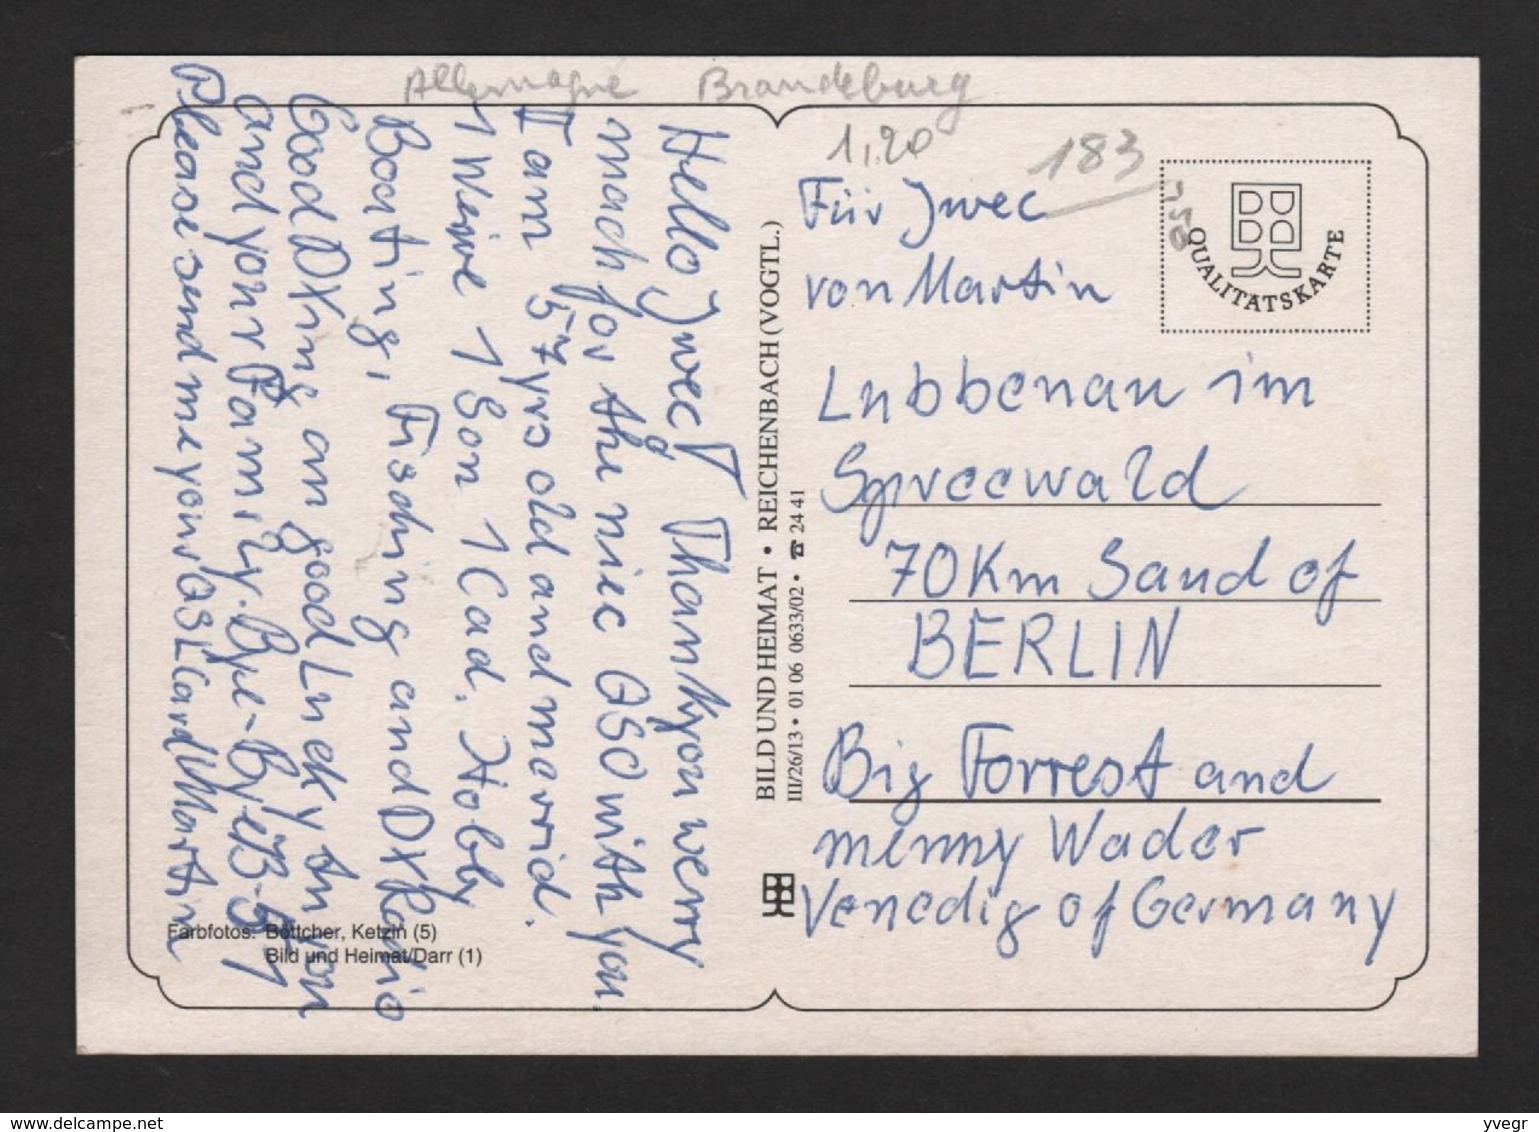 Allemagne Brandeburg
1,20
183
Hello Jwec Thank you werry
mach for the niec QSO with you.
I am 57 yrs old and merrid.
1 Weive 1 Son 1 Cad. Hobby
Boating, Fisching and DX Radio
Good DXing an good Lucky tu you
and your Family. Bye-Bye 73-51
Please send me your QSL Card Martin
BILD UND HEIMAT • REICHENBACH (VOGTL.)
III/26/13 • 01 06 0633/02 • ☎ 24 41
QUALITÄTSKARTE
Für Jwec
von Martin
Lubbenau im
Spreewald
70 Km Saud of
BERLIN
Big Forrest and
menny Wader
Venedig of Germany
Farbfotos: Böttcher, Ketzin (5)
Bild und Heimat/Darr (1)
delcampe.net
yvegr